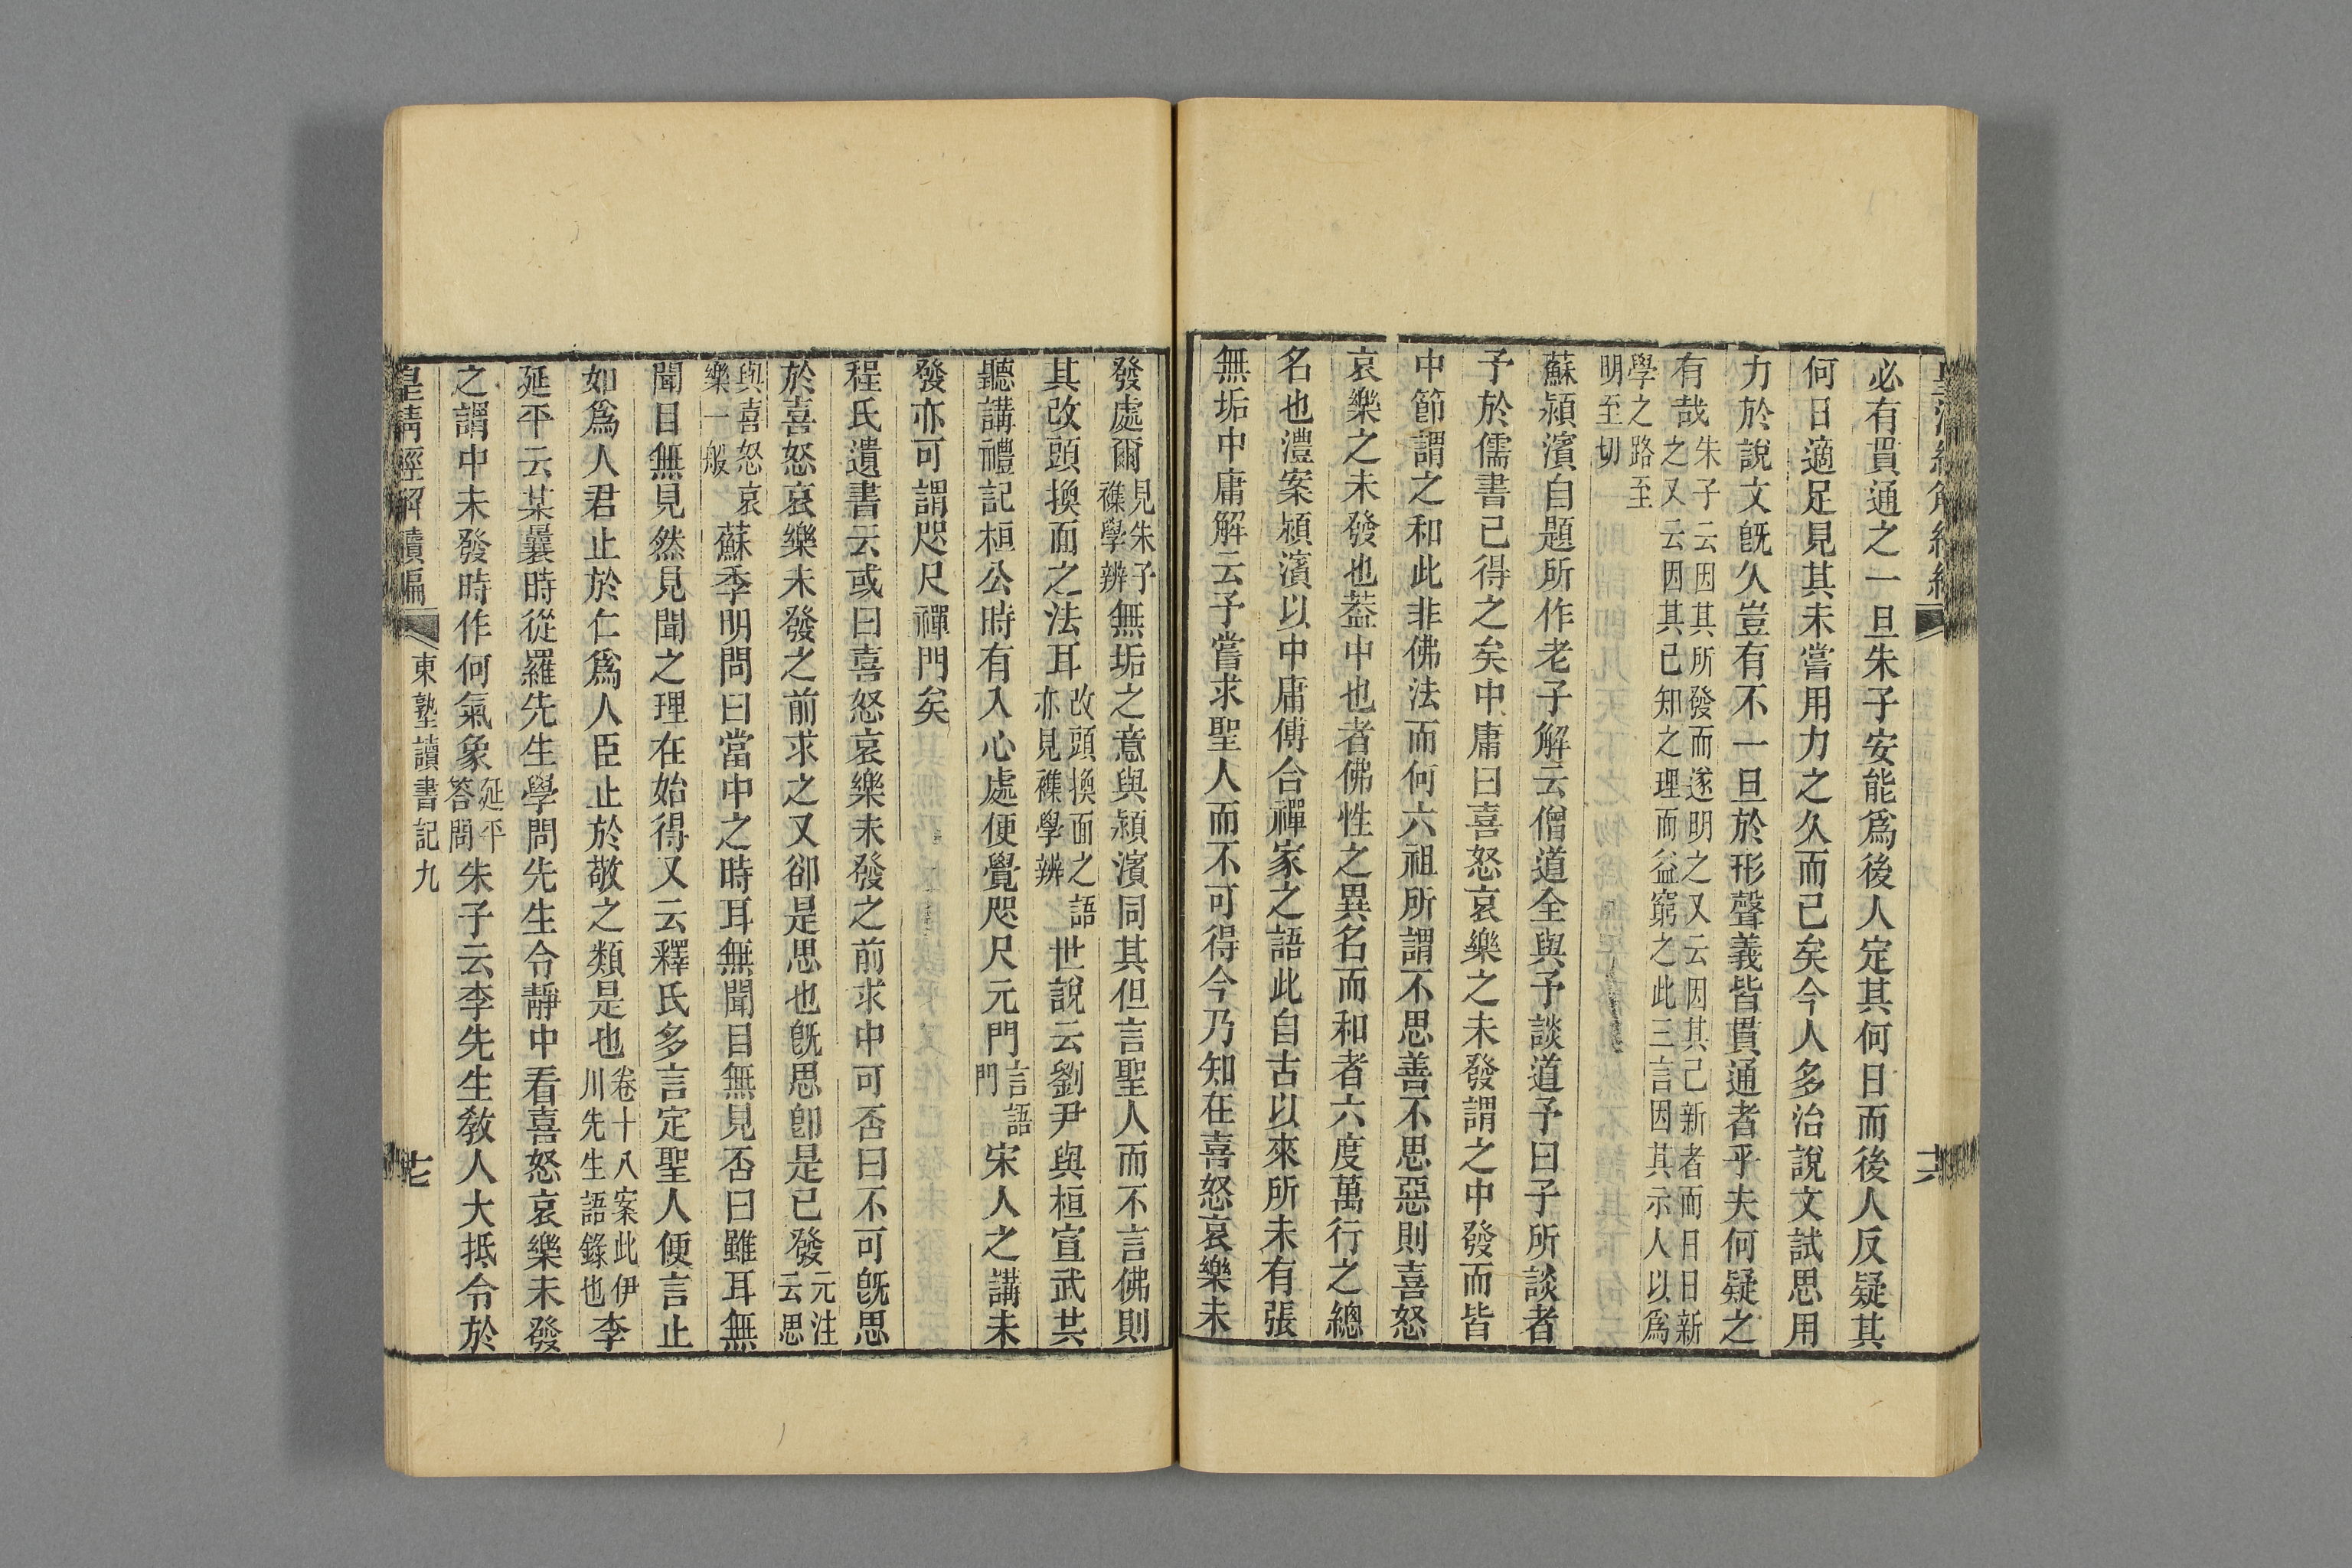 必有貫通之一旦朱子安能爲後人定其何日而後人反疑其
何日適足見其未嘗用力之久而已矣今人多治說文試思用
力於說文既久豈有不一旦於形聲義皆貫通者乎夫何疑之
有哉朱子云因其所發而遂明之又云因其已知之理而益窮之又云因其已新者而日日新之此三言因其示人以爲
學之路至明至切
蘇潁濱自題所作老子解云僧道全與予談道予曰子所談者
予於儒書已得之矣中庸曰喜怒哀樂之未發謂之中發而皆
中節謂之和此非佛法而何六祖所謂不思善不思惡則喜怒
哀樂之未發也葢中也者佛性之異名而和者六度萬行之總
名也澧案潁濱以中庸傅合禪家之語此自古以來所未有張
無垢中庸解云予嘗求聖人而不可得今乃知在喜怒哀樂未
發處爾見朱子襍學辨無垢之意與潁濱同其但言聖人而不言佛則
其改頭換面之法耳改頭換面之語亦見襍學辨世說云劉尹與桓宣武共
聽講禮記桓公時有入心處便覺咫尺元門言語門宋人之講未
發亦可謂咫尺禪門矣
程氏遺書云或曰喜怒哀樂未發之前求中可否曰不可既思
於喜怒哀樂未發之前求之又卻是思也既思卽是已發元注云思
與喜怒哀樂一般蘇季明問曰當中之時耳無聞目無見否曰雖耳無
聞目無見然見聞之理在始得又云釋氏多言定聖人便言止
如爲人君止於仁爲人臣止於敬之類是也卷十八案此伊川先生語錄也李
延平云某曩時從羅先生學問先生令靜中看喜怒哀樂未發
之謂中未發時作何氣象延平答問朱子云李先生敎人大抵令於
皇清經解續編 東塾讀書記九 七